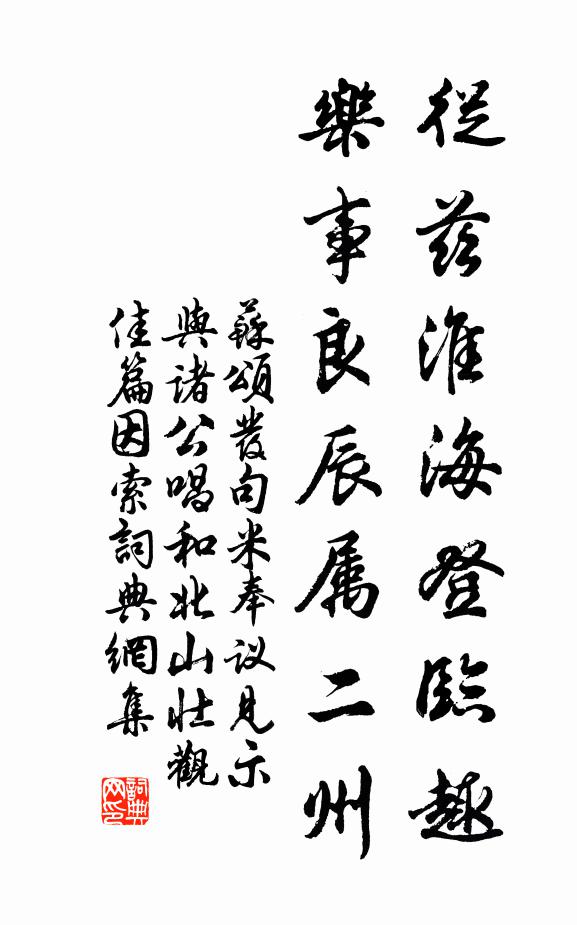 從茲淮海登臨趣
樂事良辰属二州
蘇頌發句米奉议見示
與諸公唱和北山壯觀
佳篇因索詞典網集
詞典网印